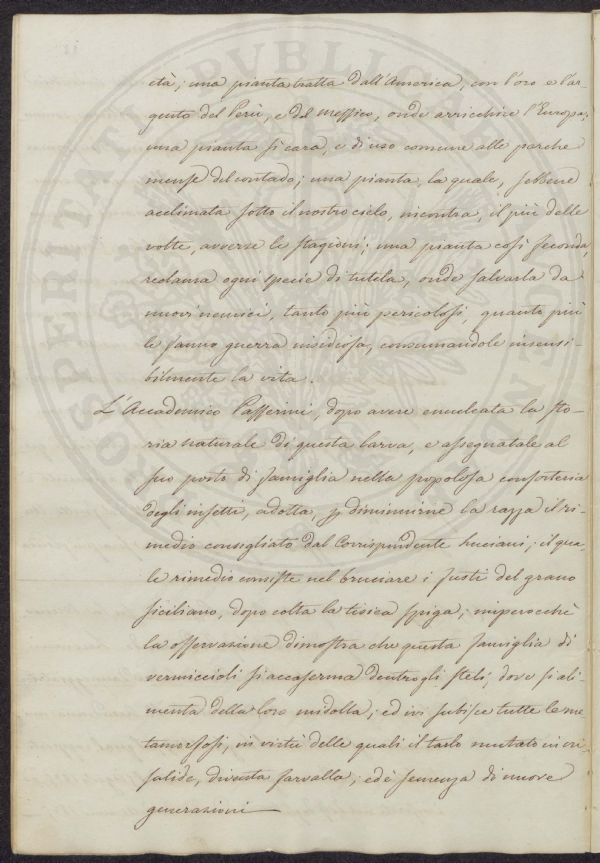 età; una pianta tratta dall'America, con l'oro e l'ar-
gento del Perù, e del Messico, onde arricchire l'Europa;
una pianta sì cara, e di uso comune alle parche
mense del contado; una pianta, la quale, sebbene
aclimata sotto il nostro cielo, incontra, il più delle
volte, avverse le stagioni; una pianta così feconda,
reclama ogni specie di tutela, onde salvarla da
nuovi nemici, tanto più pericolosi, quanto più
le fanno guerra insidiosa, consumandole insensi-
bilmente la vita.
L'Accademico Passerini, dopo avere enucleata la sto-
ria naturale di questa larva, e assegnatale al
suo posto di famiglia nella popolosa consorteria
degli insetti, adotta, p diminuirne la razza il ri-
medio consigliato dal Corrispondente Luciani; il qua-
le rimedio consiste nel bruciare i fusti del grano
siciliano, dopo colta la tisica spiga; imperocchè
la osservazione dimostra che questa famiglia di
vermiccioli si accaserma dentro gli steli, dove si ali-
menta della loro midolla; ed ivi subisce tutte le me-
tamorfosi, in virtù delle quali il tarlo mutato in cri-
salide, diventa farfalla; ed è semenza di nuove
generazioni —
PROSPERITATI PVBLICAE AVGENDAE